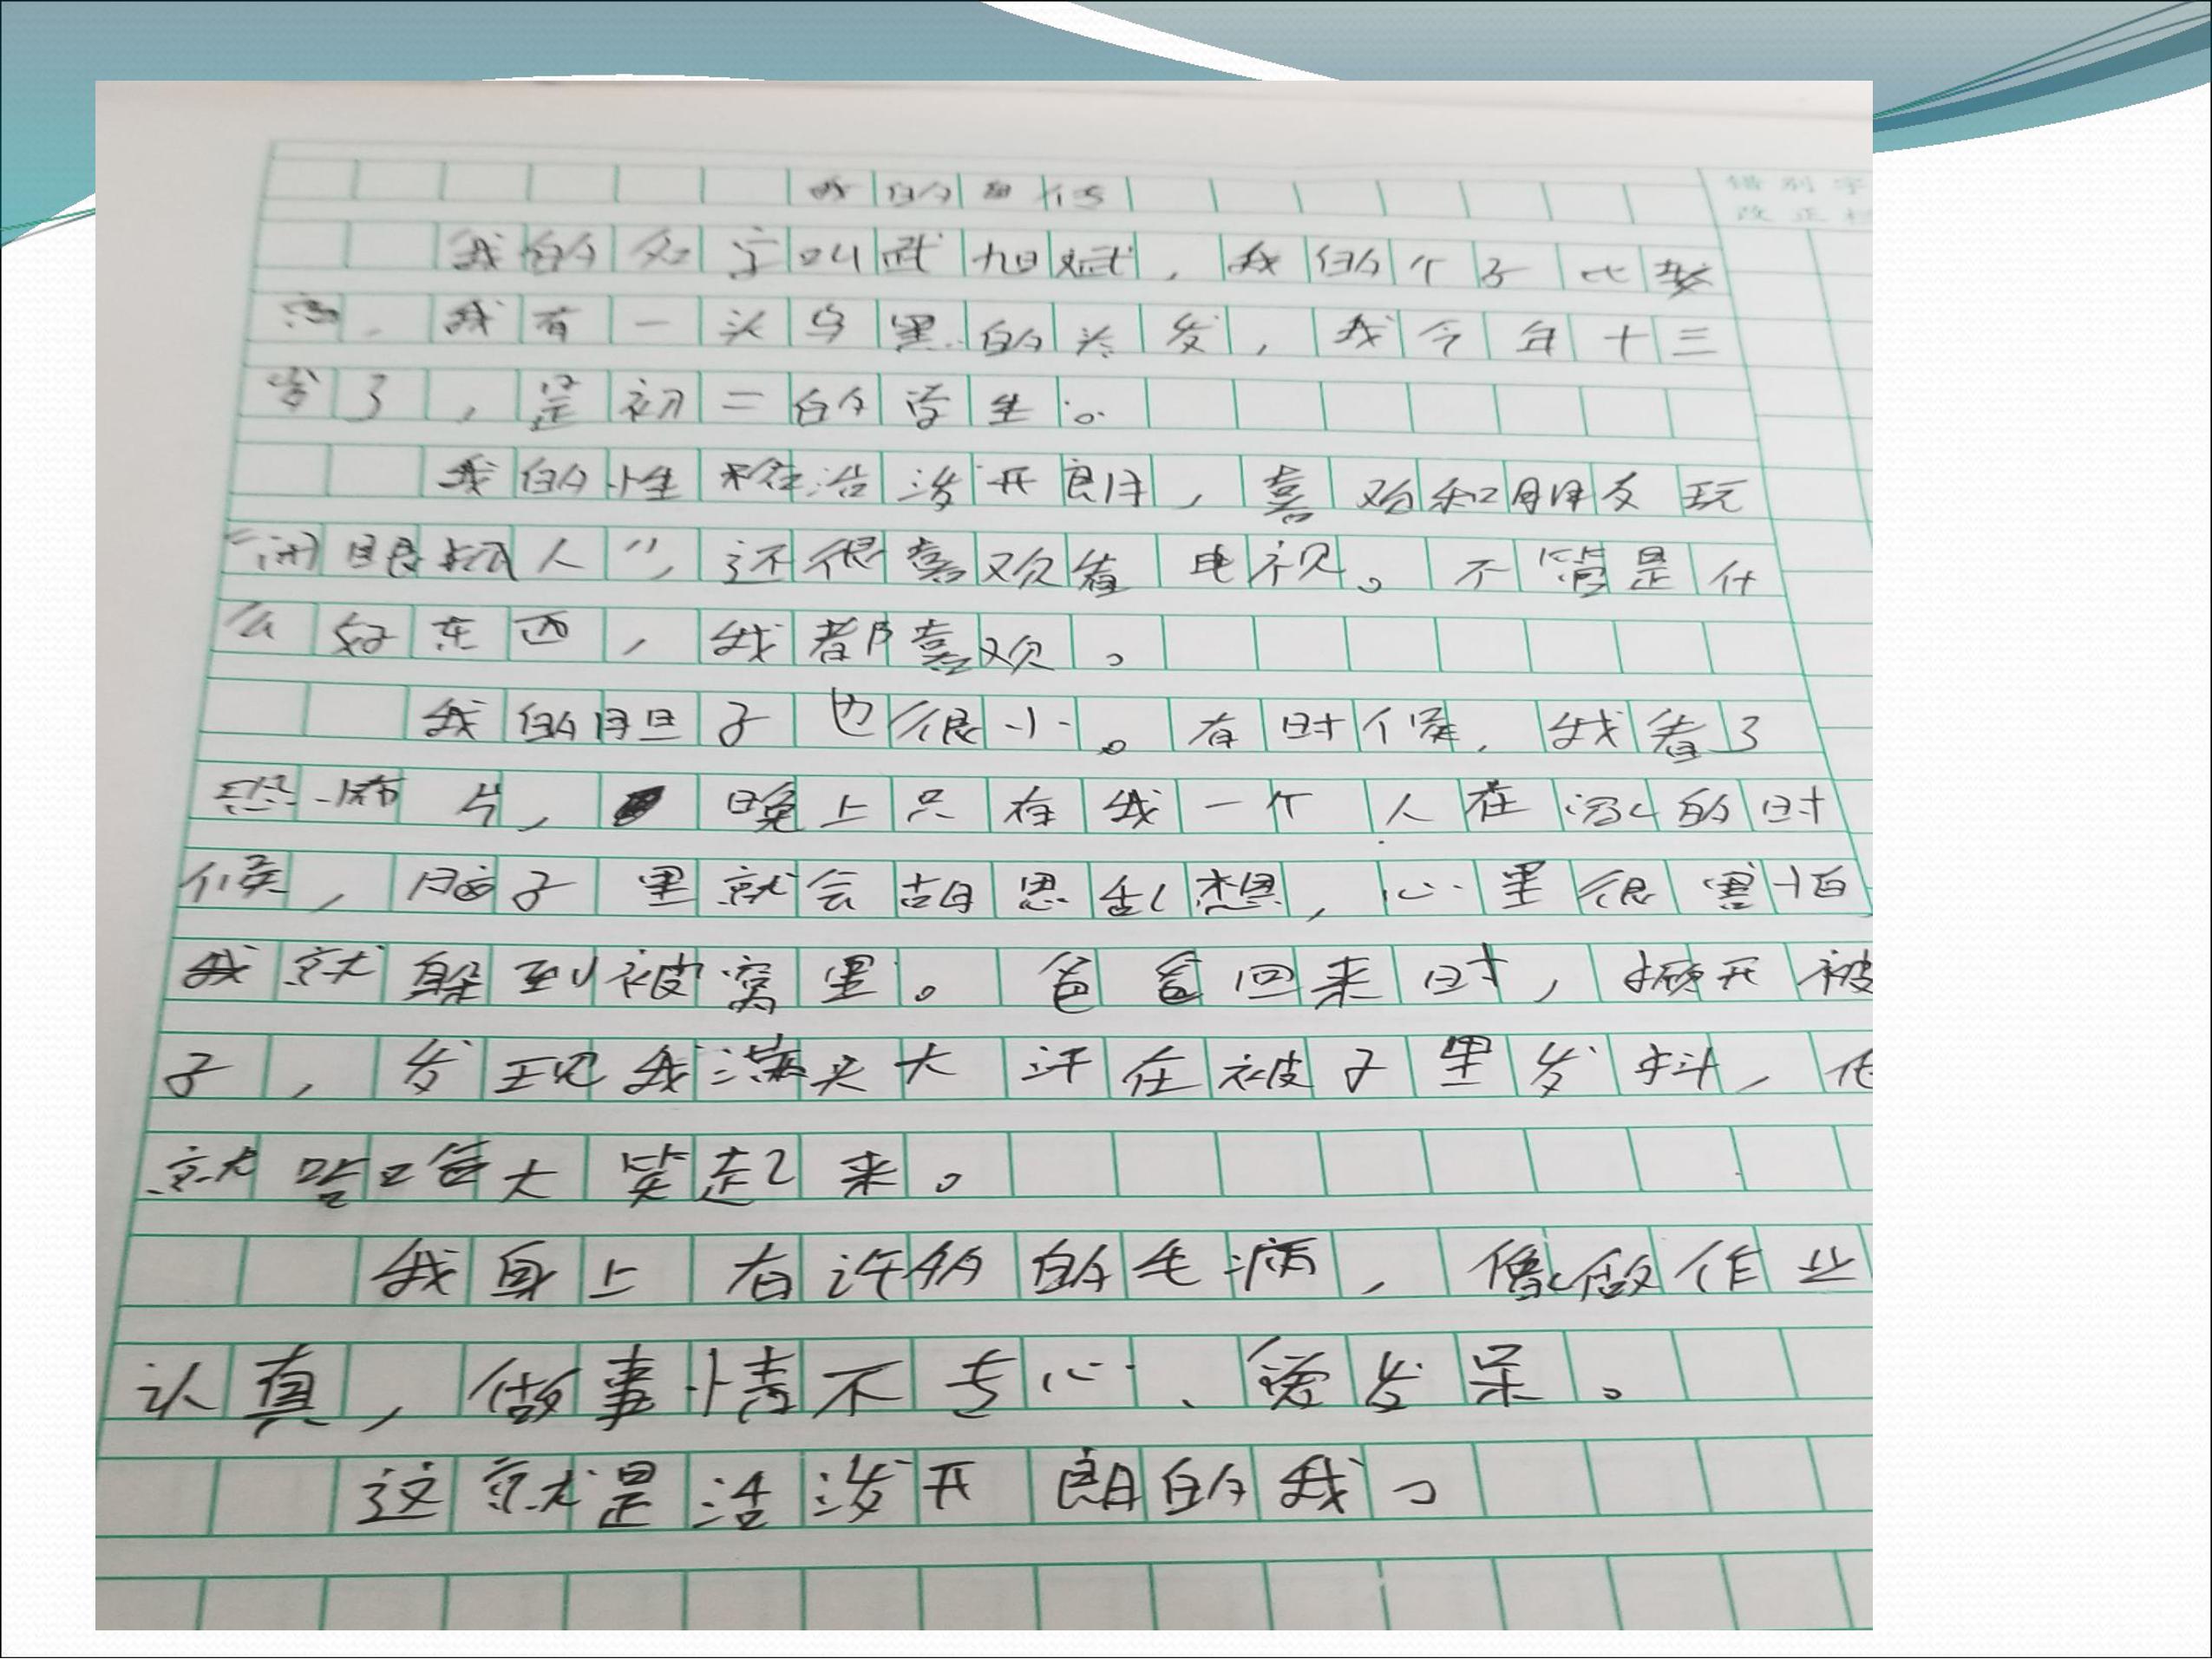 我的自传
我的名字叫武旭斌，我的个子比较
高，我有一头乌黑的头发，我今年十三
岁了，是初二的学生。
我的性格活泼开朗，喜欢和朋友玩
“闭眼抓人”，还很喜欢看电视。不管是什
么好东西，我都喜欢。
我的胆子也很小。有时候，我看了
恐怖片，晚上只有我一个人在家的时
候，脑子里就会胡思乱想，心里很害怕
我就躲到被窝里。爸爸回来时，掀开被
子，发现我满头大汗在被子里发抖，他
就哈哈大笑起来。
我身上有许多的毛病，像做作业
认真，做事情不专心、爱发呆。
这就是活泼开朗的我。
错别字
改正栏